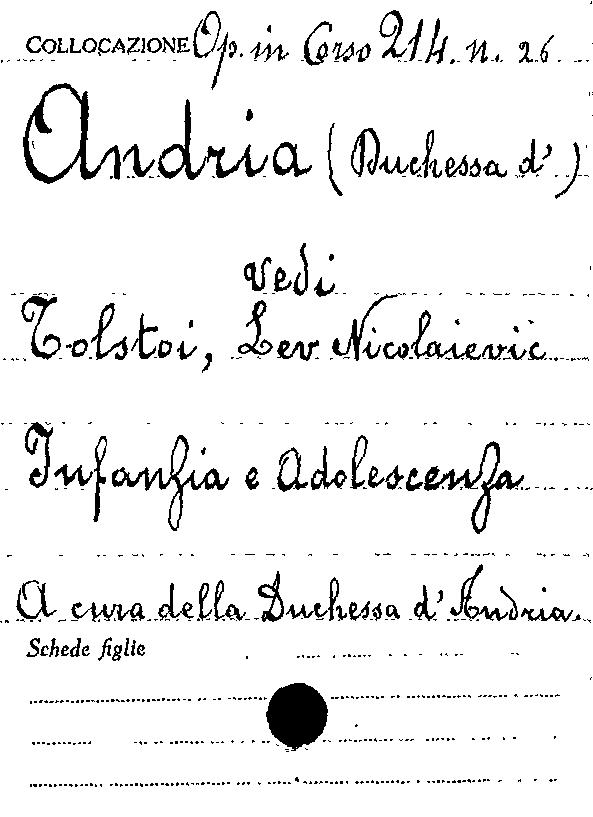 COLLOCAZIONE Op. in Corso 214. n. 26
Andria (Duchessa d')
vedi
Tolstoi, Lev Nicolaievič
Infanzia e Adolescenza
A cura della Duchessa d'Andria.
Schede figlie